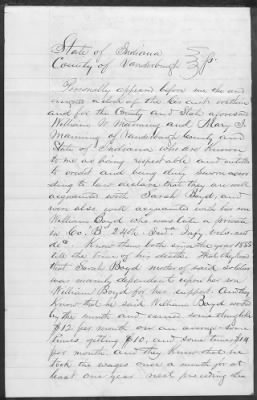 State of Indiana
County of Vanderburgh } ss.
Personally appeared before me the under
signed a clerk of the Cir court within
and for the County and State aforesaid
William W. Manning and Mary J.
Manning of Vanderburgh County and
State of Indiana who are known
to me as being respectable and entitled
to credit and being duly sworn accor
ding to law declare that they are well
acquainted with Sarah Boyd and have
been also well acquainted with her son
William Boyd who was late a private
in Co. B 24th Ind. Infy vols and
dec'd. Know them both since the year 1855
till the time of his death. That they know
that Sarah Boyd mother of said soldier
was mainly dependent upon her son
William Boyd for her support and they
know that he said William Boyd worked
by the month and earned some
$12 per month on an average some
times getting $10, and some times $14
per month and they know that he
took the wages once a month for at
least one year next preceding his